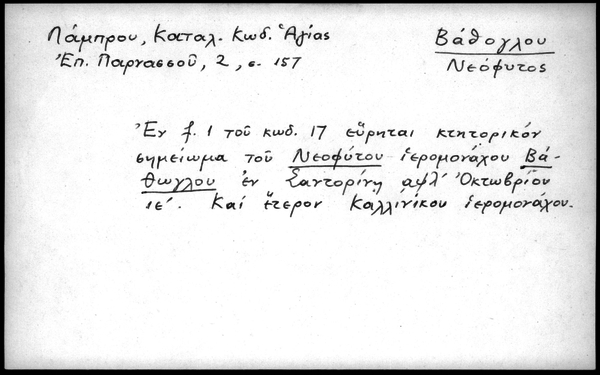 Λάμπρου, Καταλ. Κωδ. Ἁγίας
Ἐπ. Παρνασσοῦ, 2, σ. 157
Βάθογλου
Νεόφυτος
Ἐν f. 1 τοῦ κωδ. 17 εὕρηται κτητορικόν
σημείωμα τοῦ Νεοφύτου ἱερομονάχου Βά-
θωγλου ἐν Σαντορίνῃ αψλ´ Ὀκτωβρίου
ιε´. Καί ἕτερον Καλλινίκου ἱερομονάχου.